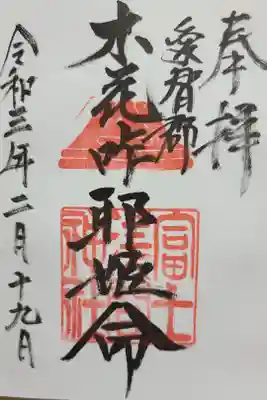 奉拝
愛智郡
木花咲耶姫命
富士
神社
令和三年二月十九月